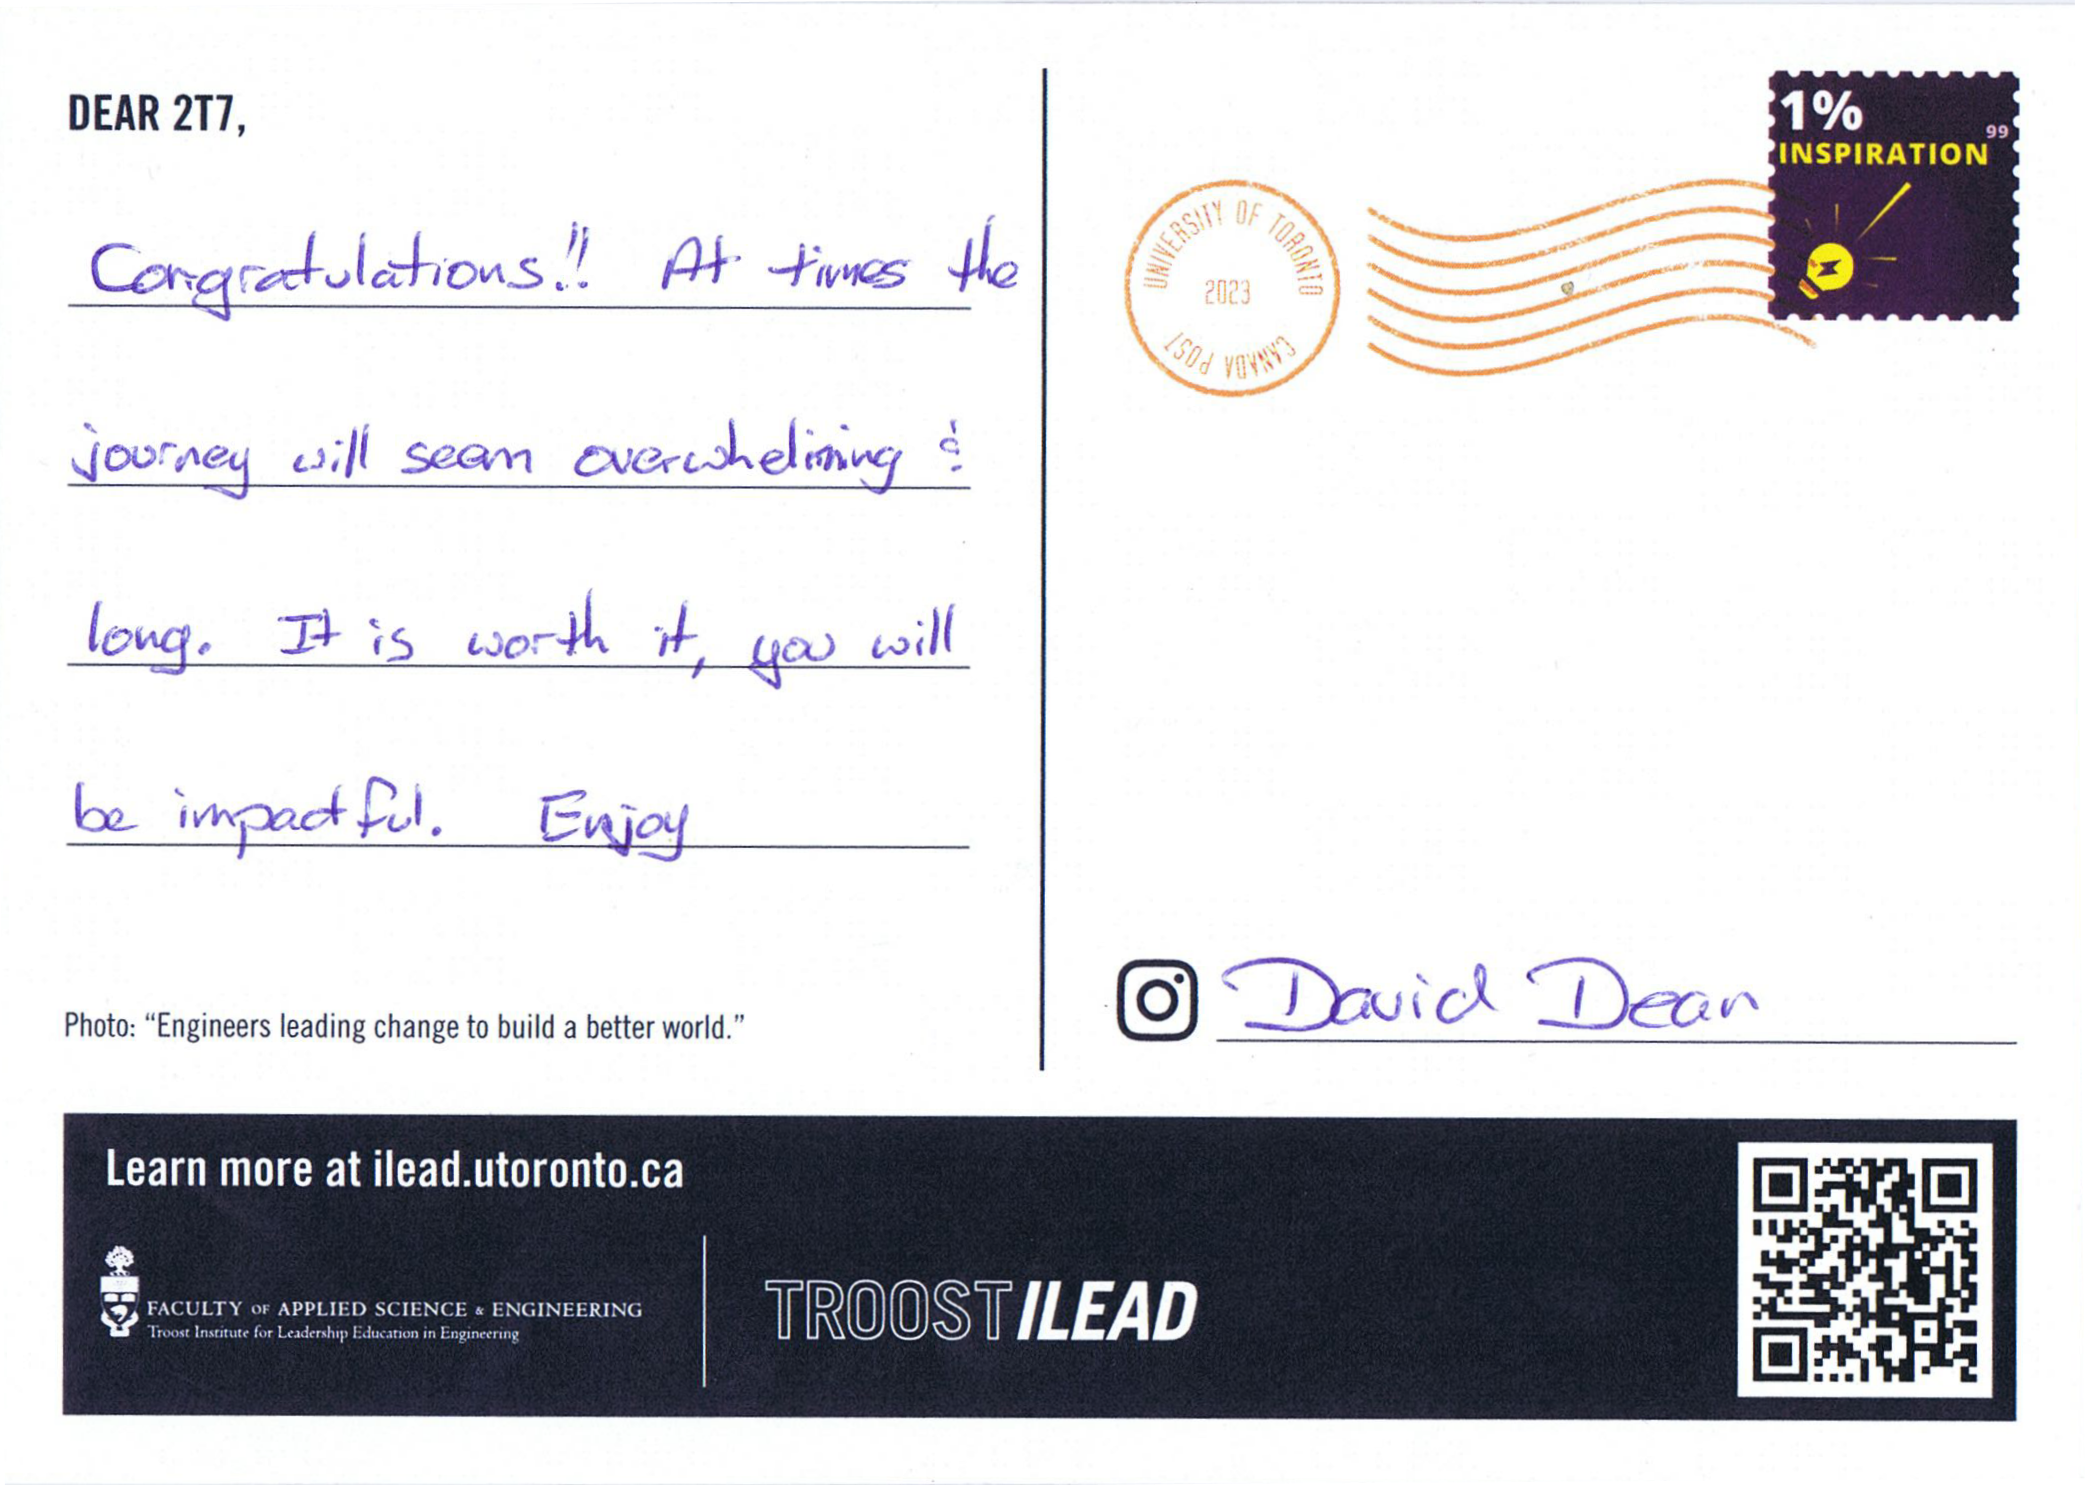 DEAR 2T7,
Congratulations!! At times the
journey will seem overwhelming &
long. It is worth it, you will
be impactful. Enjoy
Photo: “Engineers leading change to build a better world.”
1%
99
INSPIRATION
UNIVERSITY OF TORONTO
2023
CANADA POST
David Dean
Learn more at ilead.utoronto.ca
FACULTY OF APPLIED SCIENCE & ENGINEERING
Troost Institute for Leadership Education in Engineering
TROOST ILEAD